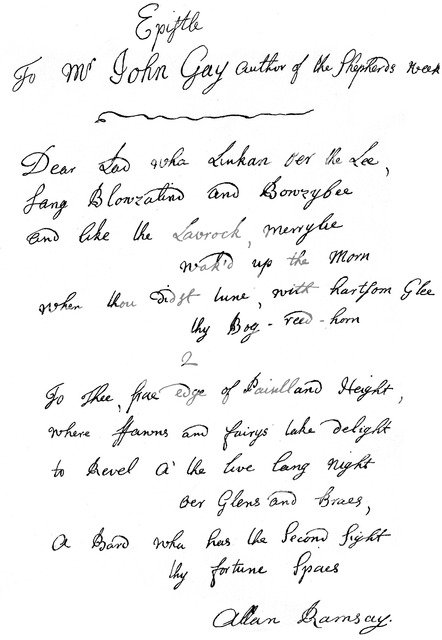 Epistle
To Mr John Gay author of the Shepherds week
Dear Lad wha Linkan o'er the Lee,
Sang Blowzalind and Bowzybee
and like the Lavrock, merrylie
wak'd up the Morn
when thou didst tune, with hartsom Glee
thy Bog-reed-horn
2
To Thee, frae edge of Pentland Height,
where ffawns and fairys take delight
to Revel a' the live lang night
o'er Glens and Braes,
a Bard wha has the Second Sight
thy fortune Spaes
Allan Ramsay.